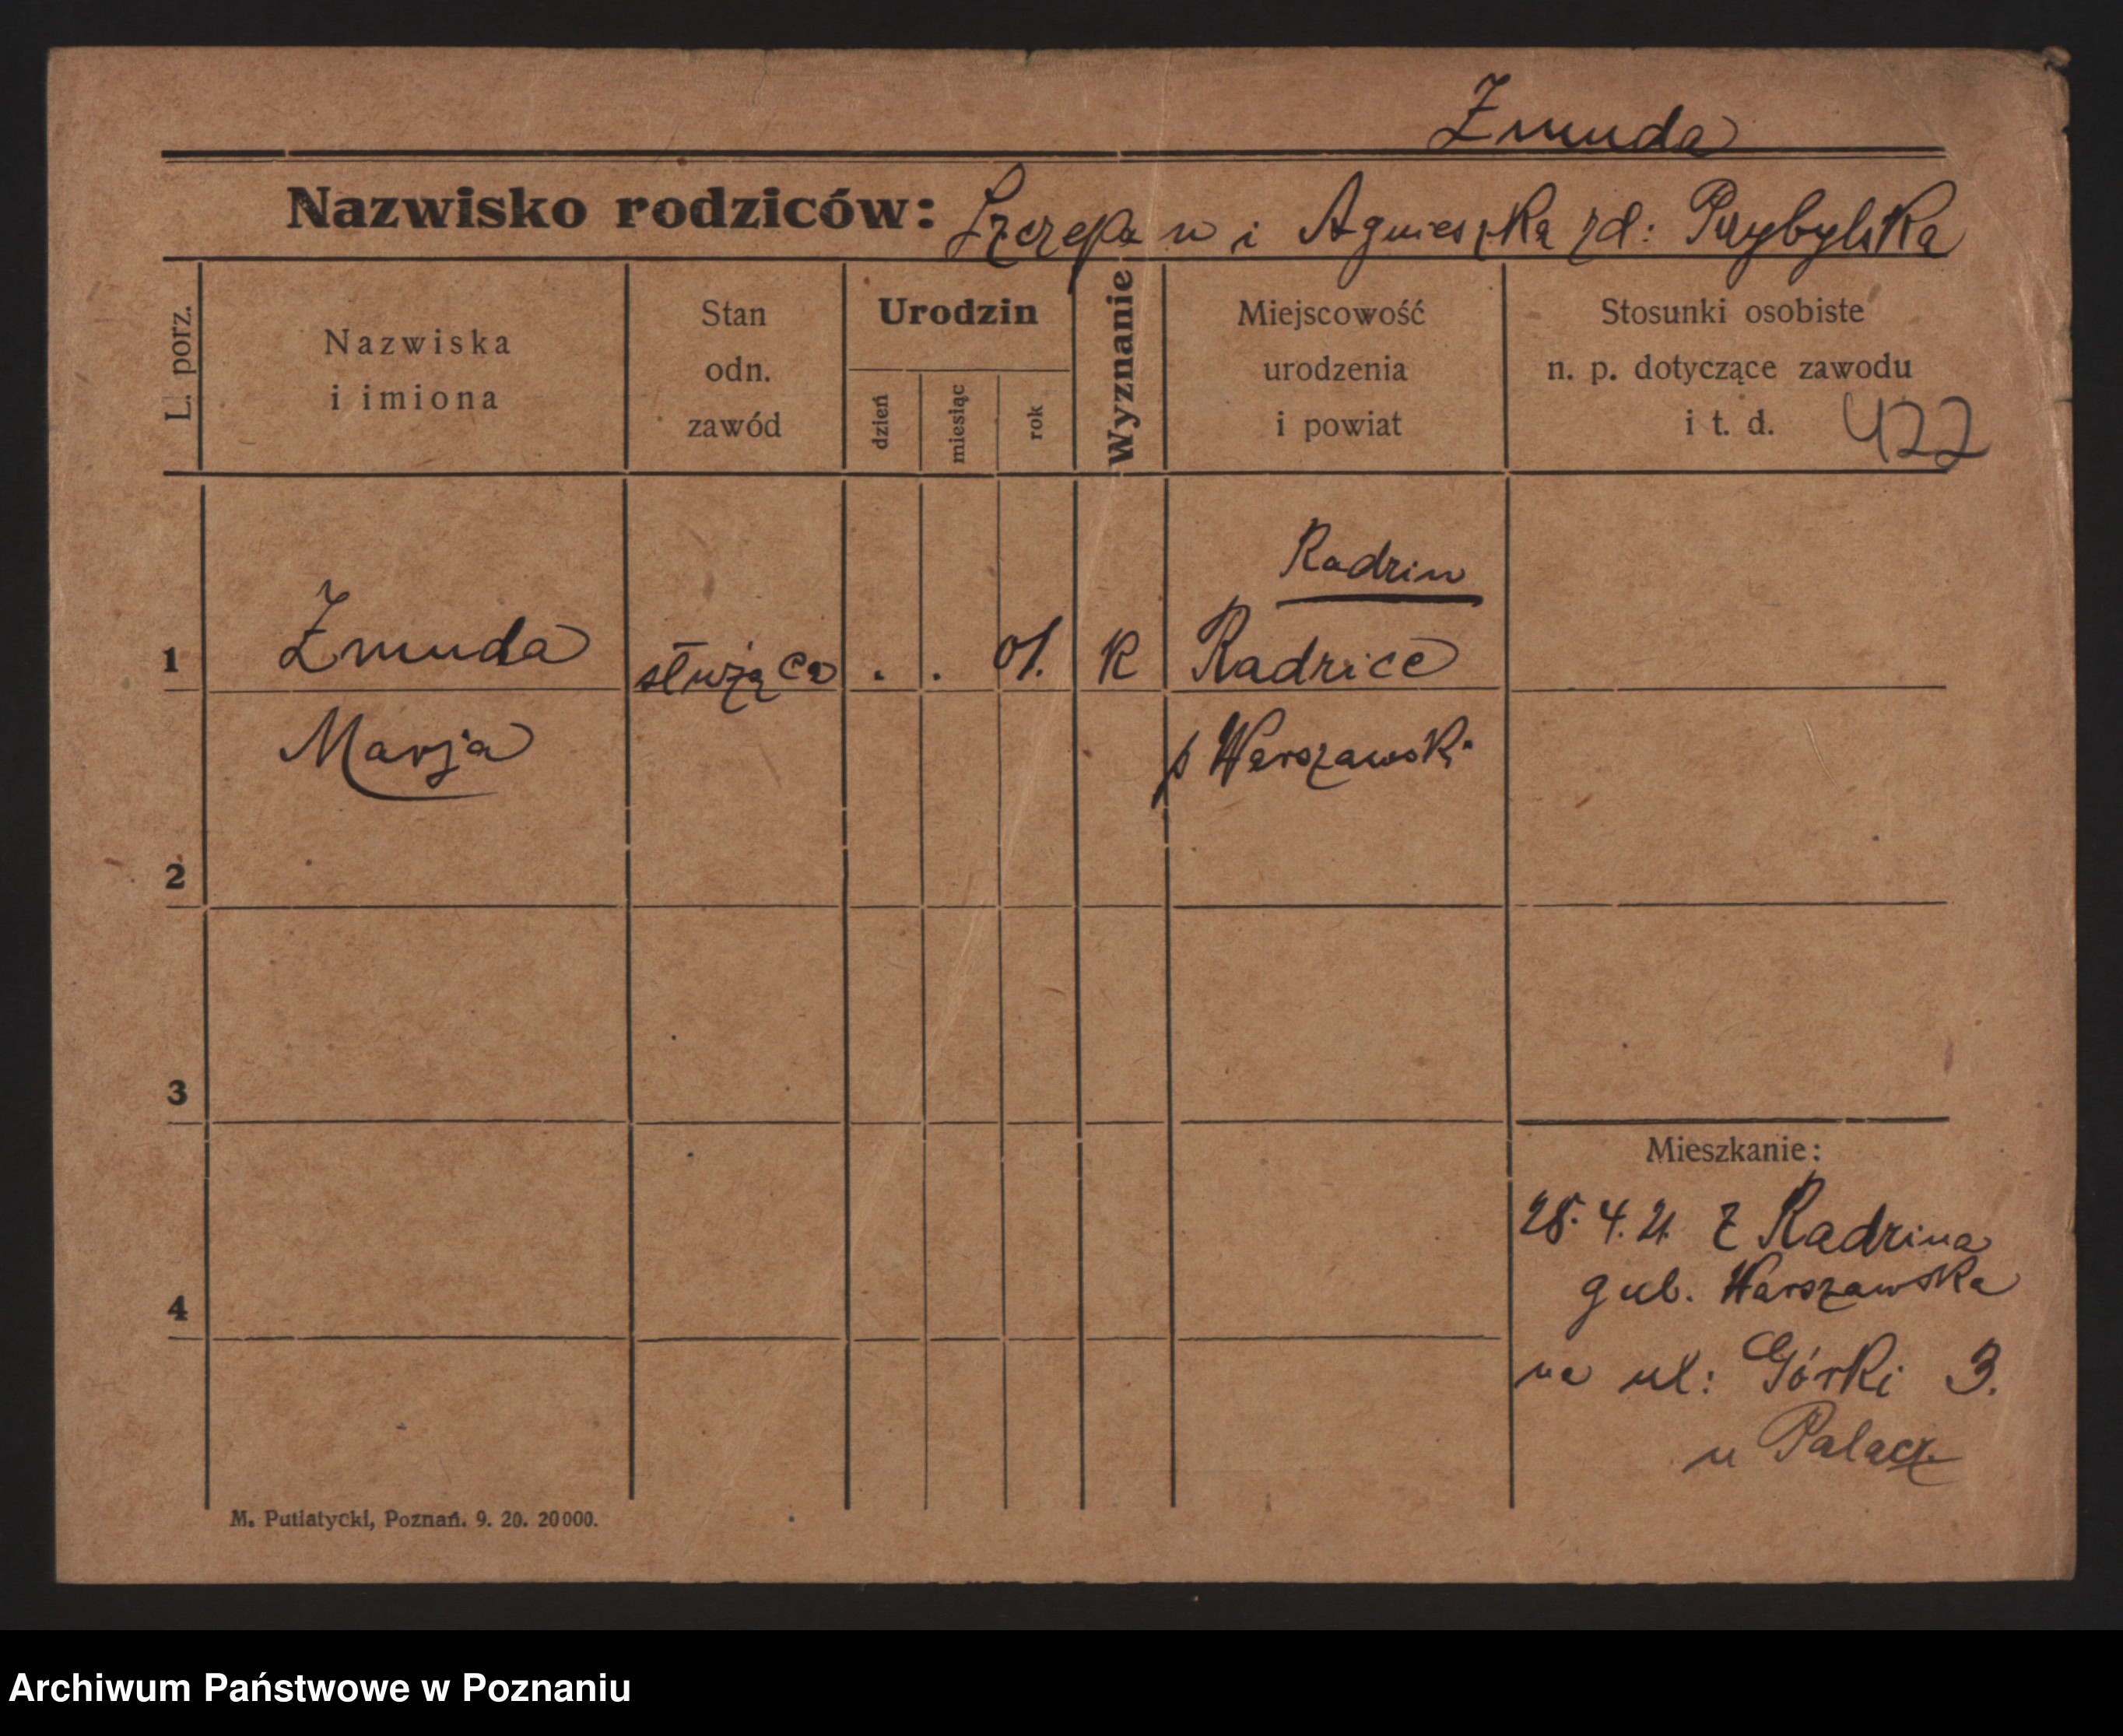 Żmuda
Nazwisko rodziców: Szczepan i Agnieszka zd: Przybylska
L. porz.
Nazwiska
i imiona
Stan
odn.
zawód
Urodzin
dzień
miesiąc
rok
Wyznanie
Miejscowość
urodzenia
i powiat
Stosunki osobiste
n. p. dotyczące zawodu
i t. d. 422
Radzin
1 Żmuda służąca . . 01. K Radzice
Marja p Warszawski
2
3
Mieszkanie:
28.4.21. z Radzina
4 gub. Warszawska
na ul: Górki 3.
u Palacz
M. Putiatycki, Poznań. 9. 20. 20000.
Archiwum Państwowe w Poznaniu